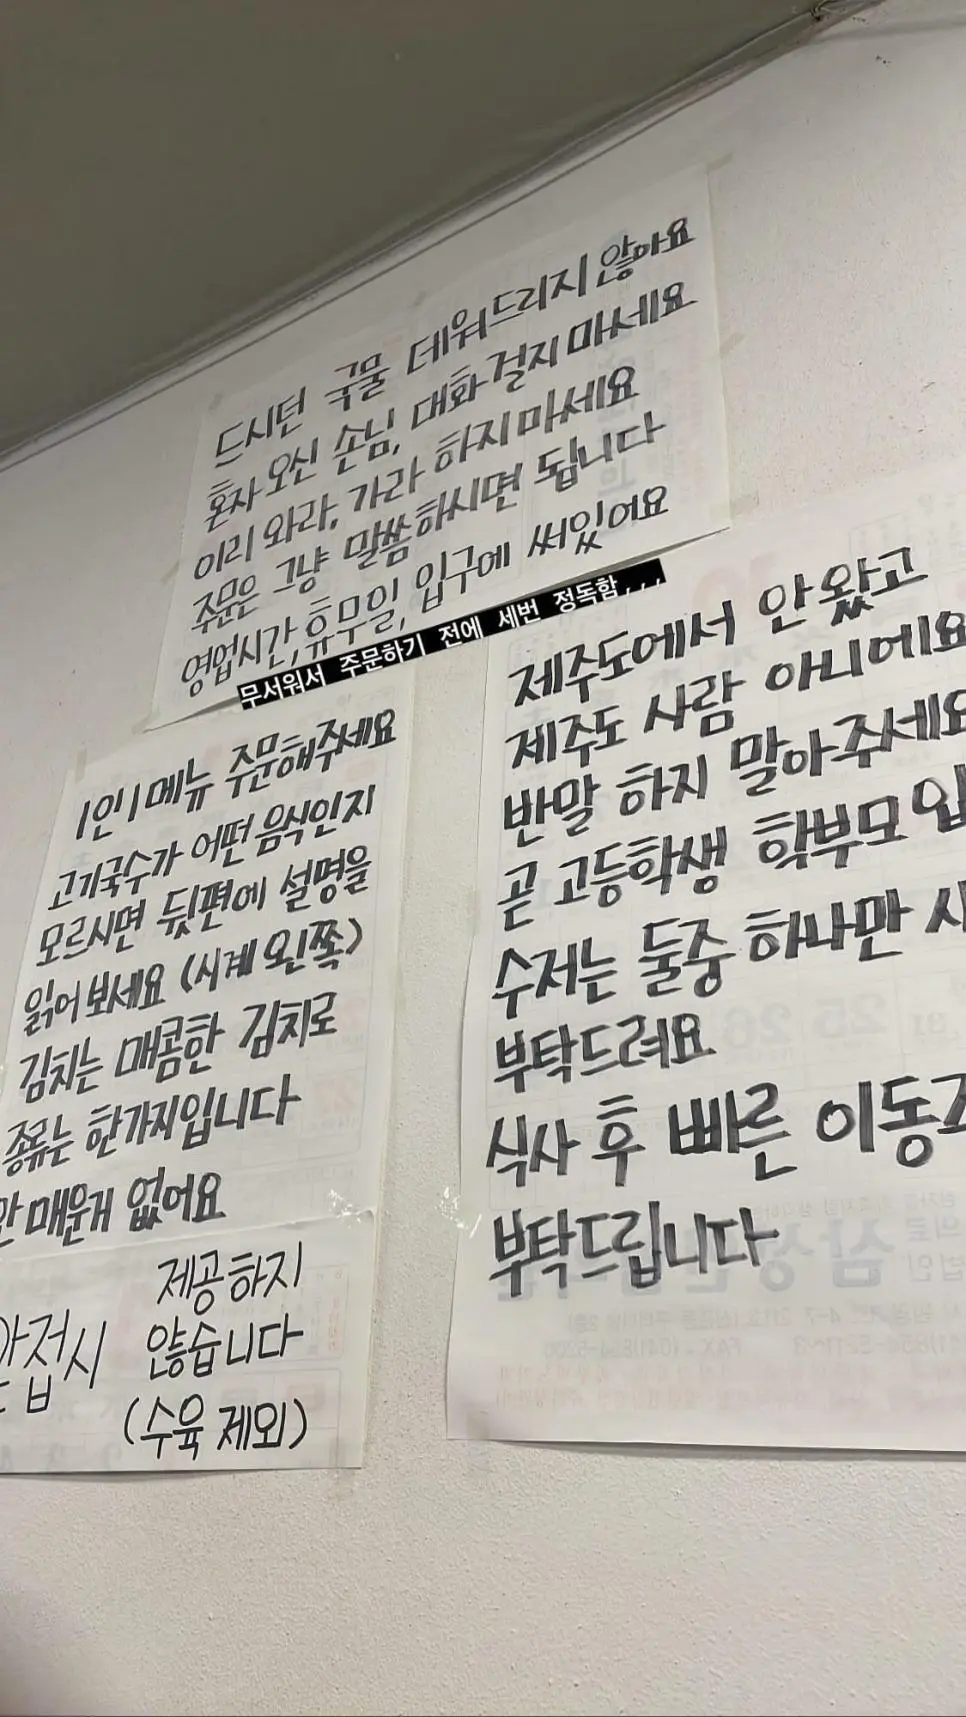 드시던 국물 데워드리지 않아요
혼자 오신 손님, 대화 걸지 마세요
이리 와라, 가라 하지마세요
주문은 그냥 말씀하시면 됩니다
영업시간, 휴무일, 입구에 써있어요
무서워서 주문하기 전에 세번 정독함,,,
1인 1메뉴 주문해주세요
고기국수가 어떤 음식인지
모르시면 뒷편에 설명을
읽어 보세요 (시계 왼쪽)
김치는 매콤한 김치로
종류는 한가지입니다
안 매운게 없어요
제공하지
앞접시 않습니다
(수육 제외)
제주도에서 안 왔고
제주도 사람 아니에요
반말 하지 말아주세요
곧 고등학생 학부모
수저는 둘중 하나만
부탁드려요
식사 후 빠른 이동
부탁드립니다